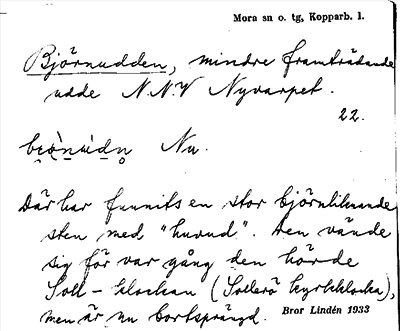 Mora sn o. tg, Kopparb. l.
Björnudden, mindre framträdande
udde N.N.V Nyvarpet.
22.
Nu.
Där har funnits en stor björnliknande
sten med "huvud". Den vände
sig för var gång den hörde
Soll-klockan (Sollerö kyrkklocka),
men är nu bortsprängd.
Bror Lindén 1933